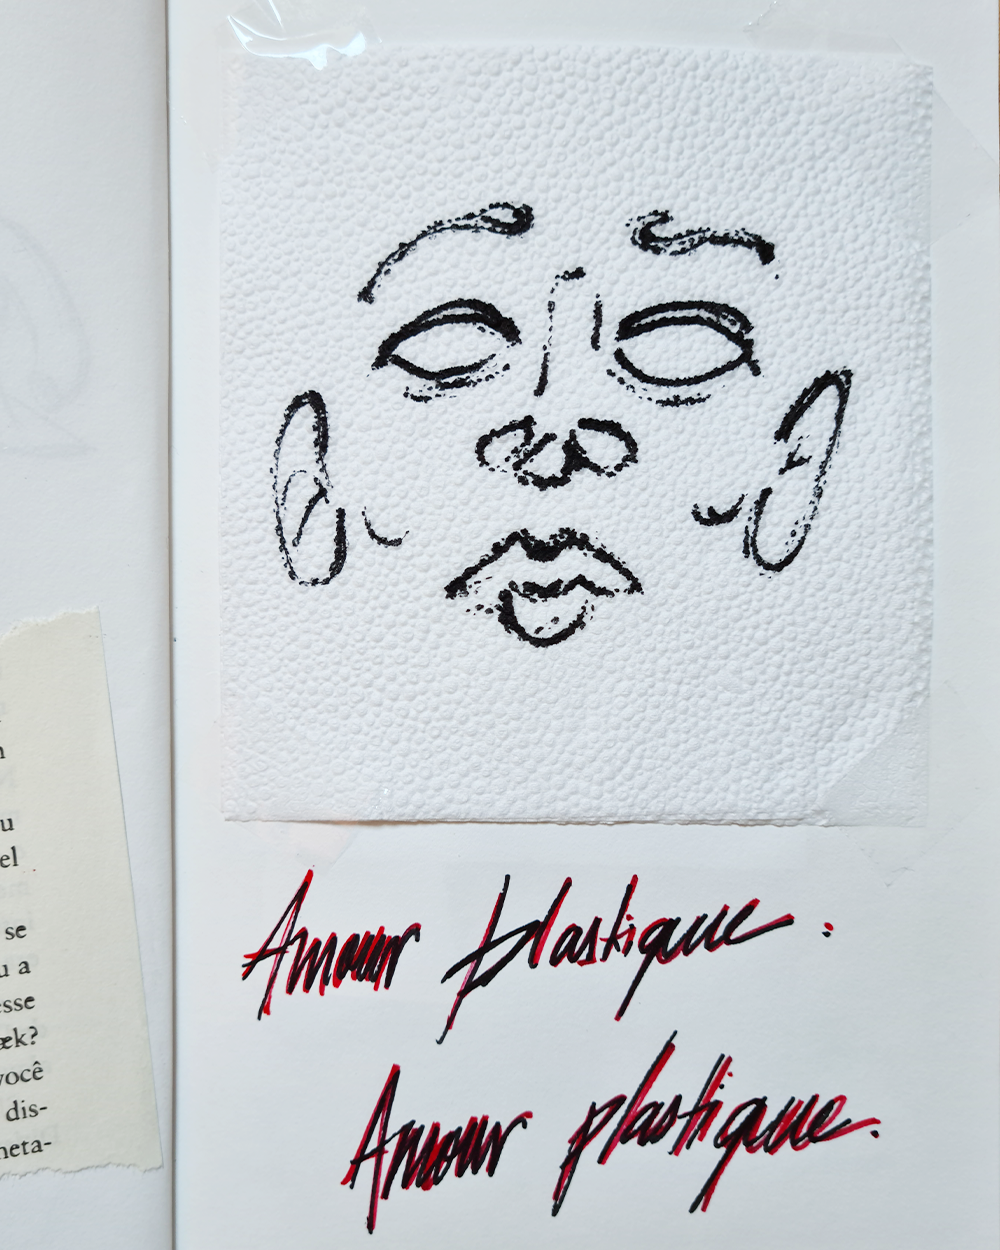 u
el
se
u a
esse
æk?
você
dis-
meta-
Amour plastique.
Amour plastique.